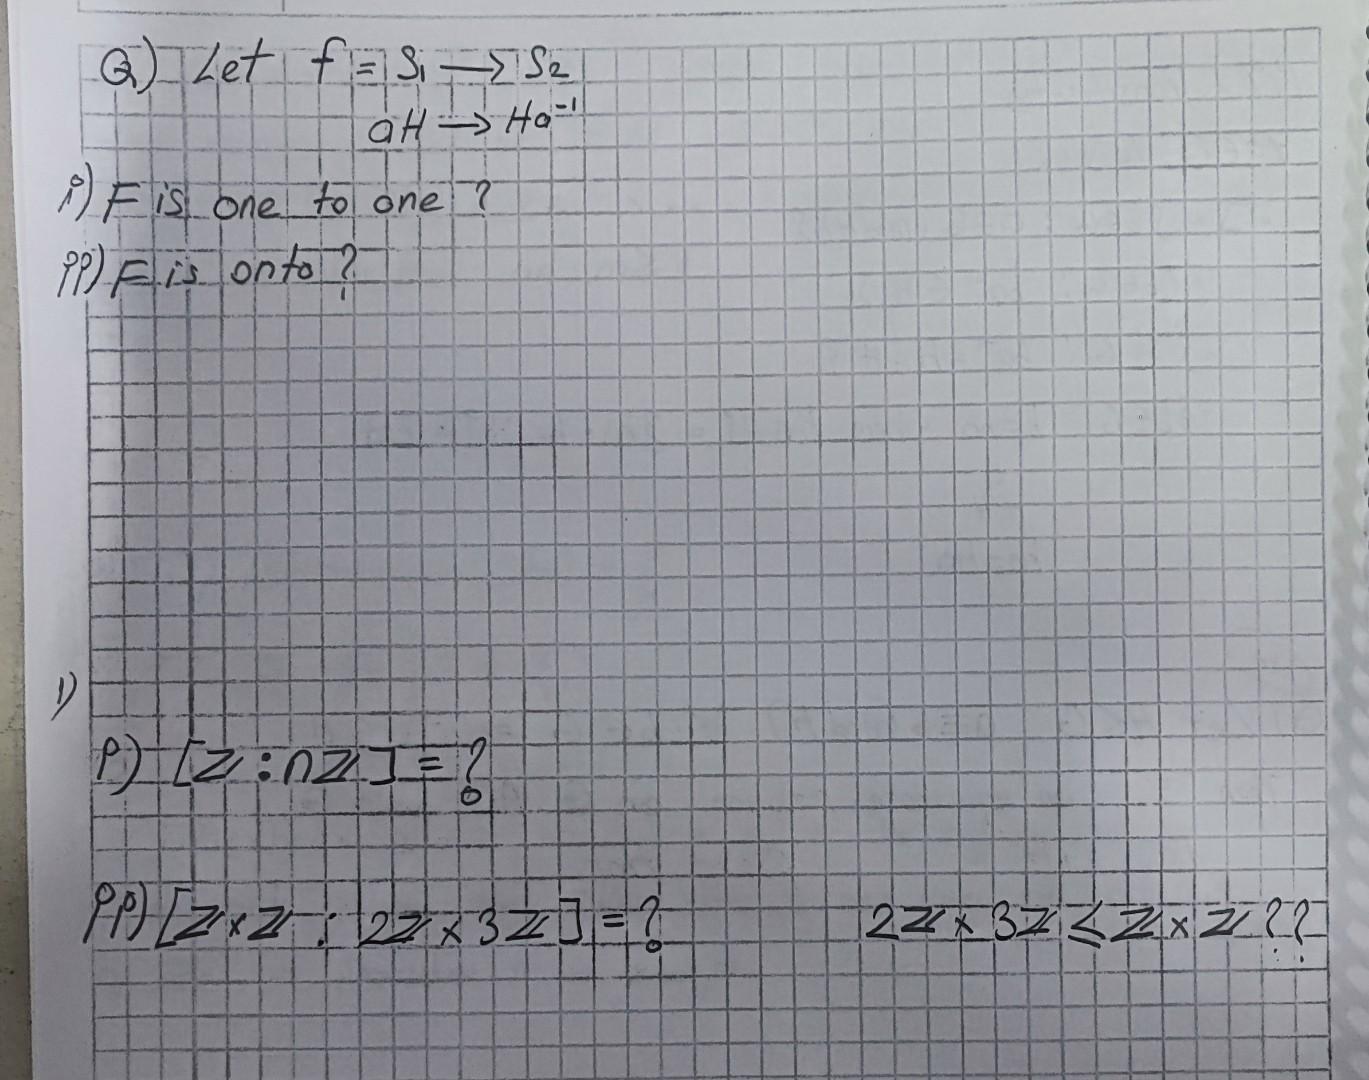 Q) Let f = S₁ → S₂
aH → Ha⁻¹
i) F is one to one ?
ii) F is onto ?
1)
i) [ℤ : nℤ] = ?
ii) [ℤ × ℤ : 2ℤ × 3ℤ] = ? 2ℤ × 3ℤ ≤ ℤ × ℤ ??